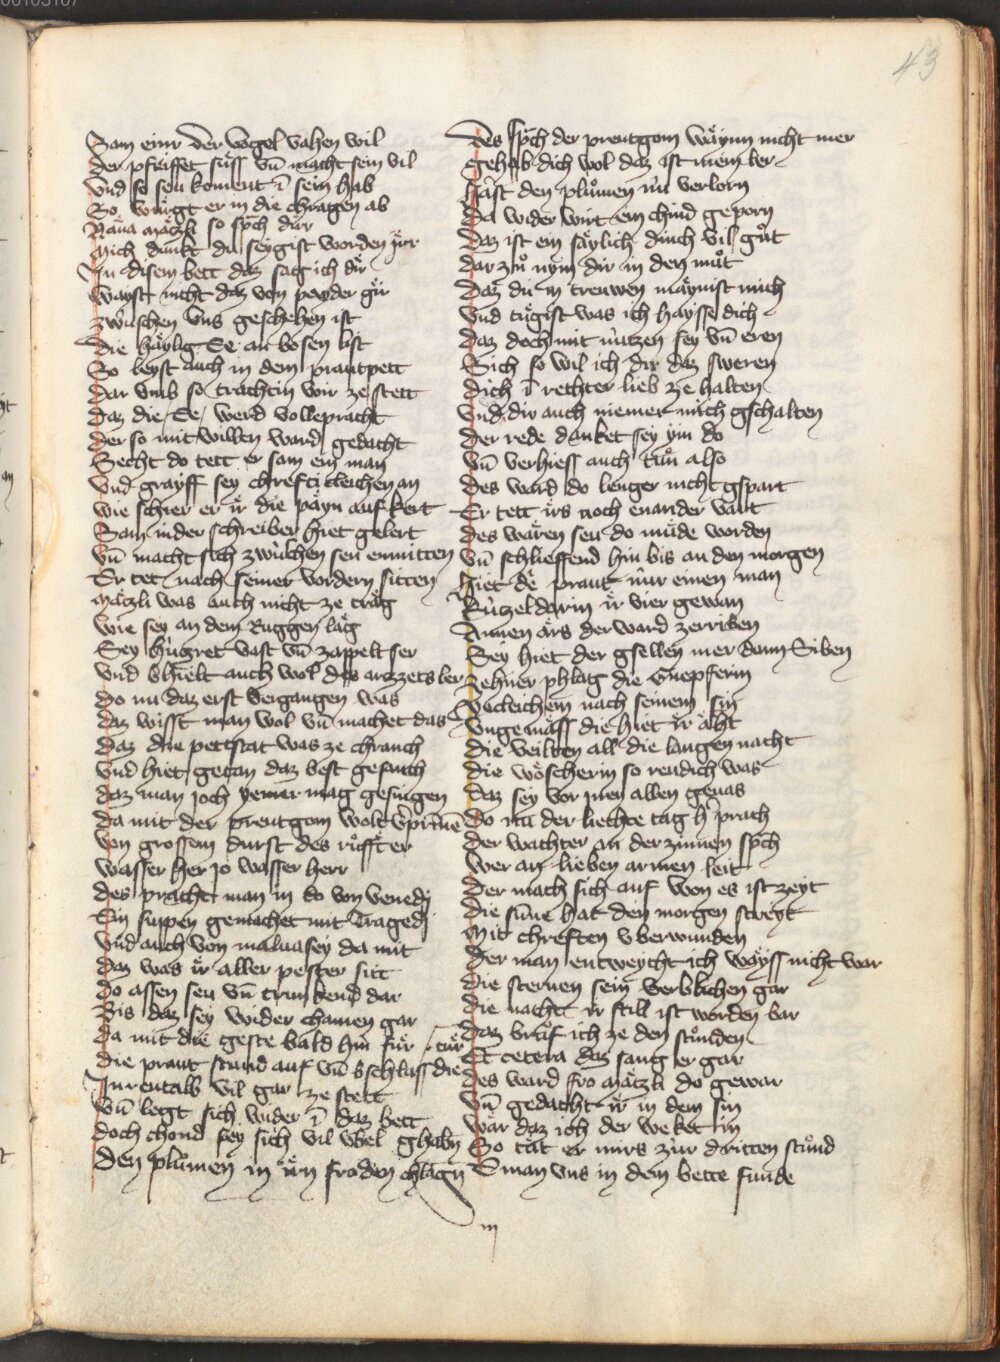 43
Sam einr der vogel vahen wil
Der pfeiffet süss vn̄ macht sein vil
Vnd so seu koment ī sein hab
So würgt er in die chragen ab
Näna mätzli so sp̄ch dür
Mich dunkt du seygist worden jrr
In disem bett daz sag ich dir
Wayst nicht daz von peyder gir
Zwüschen vns geschehen ist
Die häylig Ee an bösen list
So leyst auch in dem prautpett
Dar vmb so trachtin wir ze stett
Daz die Ee werd vollepracht
Der so mit willen ward gedacht
Secht do tett er sam ein man
Vnd grayff sey chrefticleichen an
Wie schier er ir die payn auf kert
Sam in der schreiber hiet gelert
Vn̄ macht sich zwüschen seu enmitten
Er tet nach seiner vordern sitten
Mätzli was auch nicht ze träg
Wie sey an dem Ruggen läg
Sey hügret vast vn̄ zappelt ser
Vnd bhielt auch wol des artzzets ler
Do nu daz erst vergangen was
Daz wisst man wol vn̄ machet das
Daz die pettstat was ze chranch
Vnd hiet getan daz best gesanch
Daz man joch yemer mag gesingen
Da mit der preutgom wolt v̄prīnnē
Von grossem durst des rüfft er
Wasser her jo wasser herr
Des pracht man in do von venedj
Ein suppen gemachet mit Tragedj
Vnd auch von maluasey da mit
Daz was ir aller pester sitt
Do assen seu vn̄ trunkend dar
Bis daz sey wider chamen gar
Da mit die geste bald hin für
Die praut stund auf vn̄ bschluss die tür
Inrentalb vil gar ze stett
Vn̄ legt sich wider ī daz bett
Doch chond sey sich vil vbel ghabn
Den plümen in irn froden chlagn̄
Des sp̄ch der preutgom wäynn nicht mer
Gehab dich wol daz ist mein ler
Hast den plümen nu verlorn
Da wider wirt ein chind geporn
Daz ist ein säylich dinch vil güt
Dar zü nym dir in den müt
Daz du in treuwen mäynist mich
Vnd tügist was ich haysse dich
Daz doch mit nützen sey vn̄ eren
Sich so wil ich dir daz sweren
Dich ī rechter lieb ze halten
Vnd dir auch niemer mich gschalten
Der rede danket sey ym do
Vn̄ verhiess auch tün also
Des ward do lenger nicht gspart
Er tett irs noch enander vart
Des wären seu do müde worden
Vn̄ schlieffend hin bis an den morgen
Hiet de praut nur einen man
Rützeldarm ir vier gewan
Ännen ars der ward zerriben
Sey hiet der gsellen mer dann Siben
Zehner phlag die Snepferin
Yecleichem nach seinem sin
Vngemäss die hiet ir äht
Die veilten all die langen nacht
Die wöscherin so rendich was
Daz sey vor jnen allen genas
Do nu der liechte tag h̄ prach
Der wachter an der zinnen sp̄ch
Wer an lieben armen leit
Der mach sich auf won es ist zeyt
Die sūne hat den morgen streyt
Mit chreften vberwunden
Der man entweycht ich wayss nicht war
Die sternen sein verblichen gar
Die nacht ir still ist worden bar
Daz brüf ich ze den stunden
Et cetera daz sang er gar
Des ward fro mätzli do gewar
Vn̄ gedacht ir in dem sin
Wär daz ich der weket in
So tät er mirs zür dritten stünd
E man vns in dem bette funde